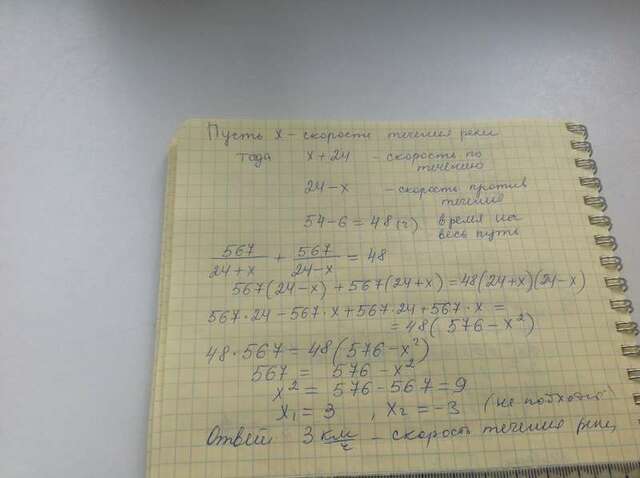 Пусть x – скорость течения реки
тогда x + 24 – скорость по
течению
24 – x – скорость против
течения
54 – 6 = 48 (ч) время на
весь путь
567/(24+x) + 567/(24–x) = 48
567(24–x) + 567(24+x) = 48(24+x)(24–x)
567·24 – 567·x + 567·24 + 567·x =
= 48(576 – x²)
48·567 = 48(576 – x²)
567 = 576 – x²
x² = 576 – 567 = 9
x₁ = 3 , x₂ = –3 (не подходит)
Ответ 3 км/ч – скорость течения реки